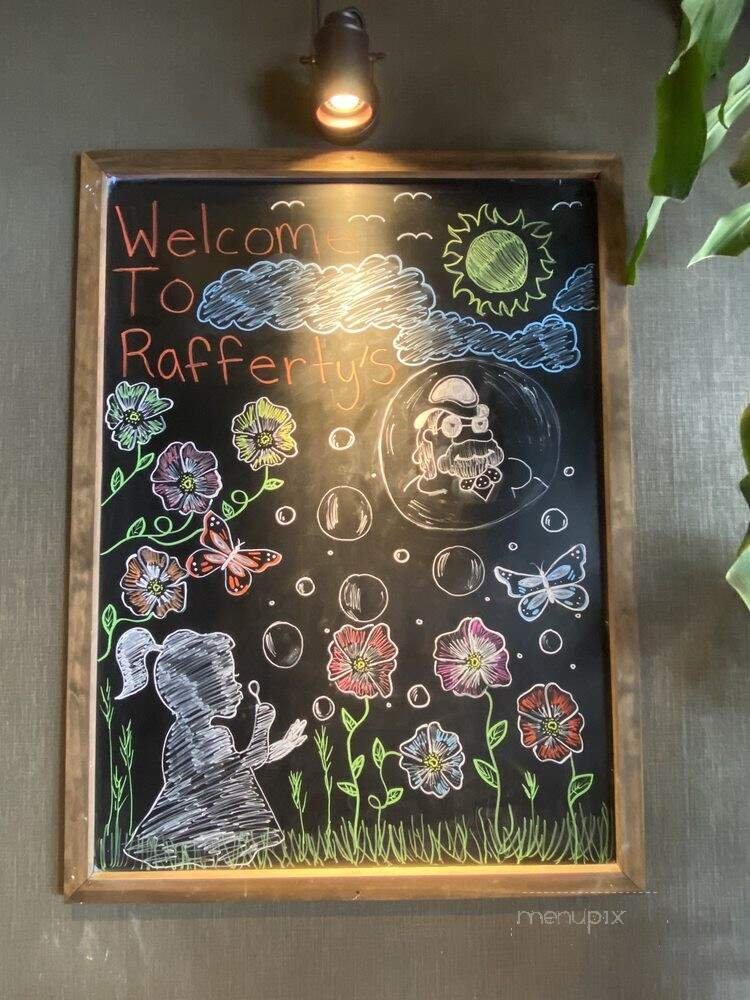 Welcome
To
Rafferty's
menupix